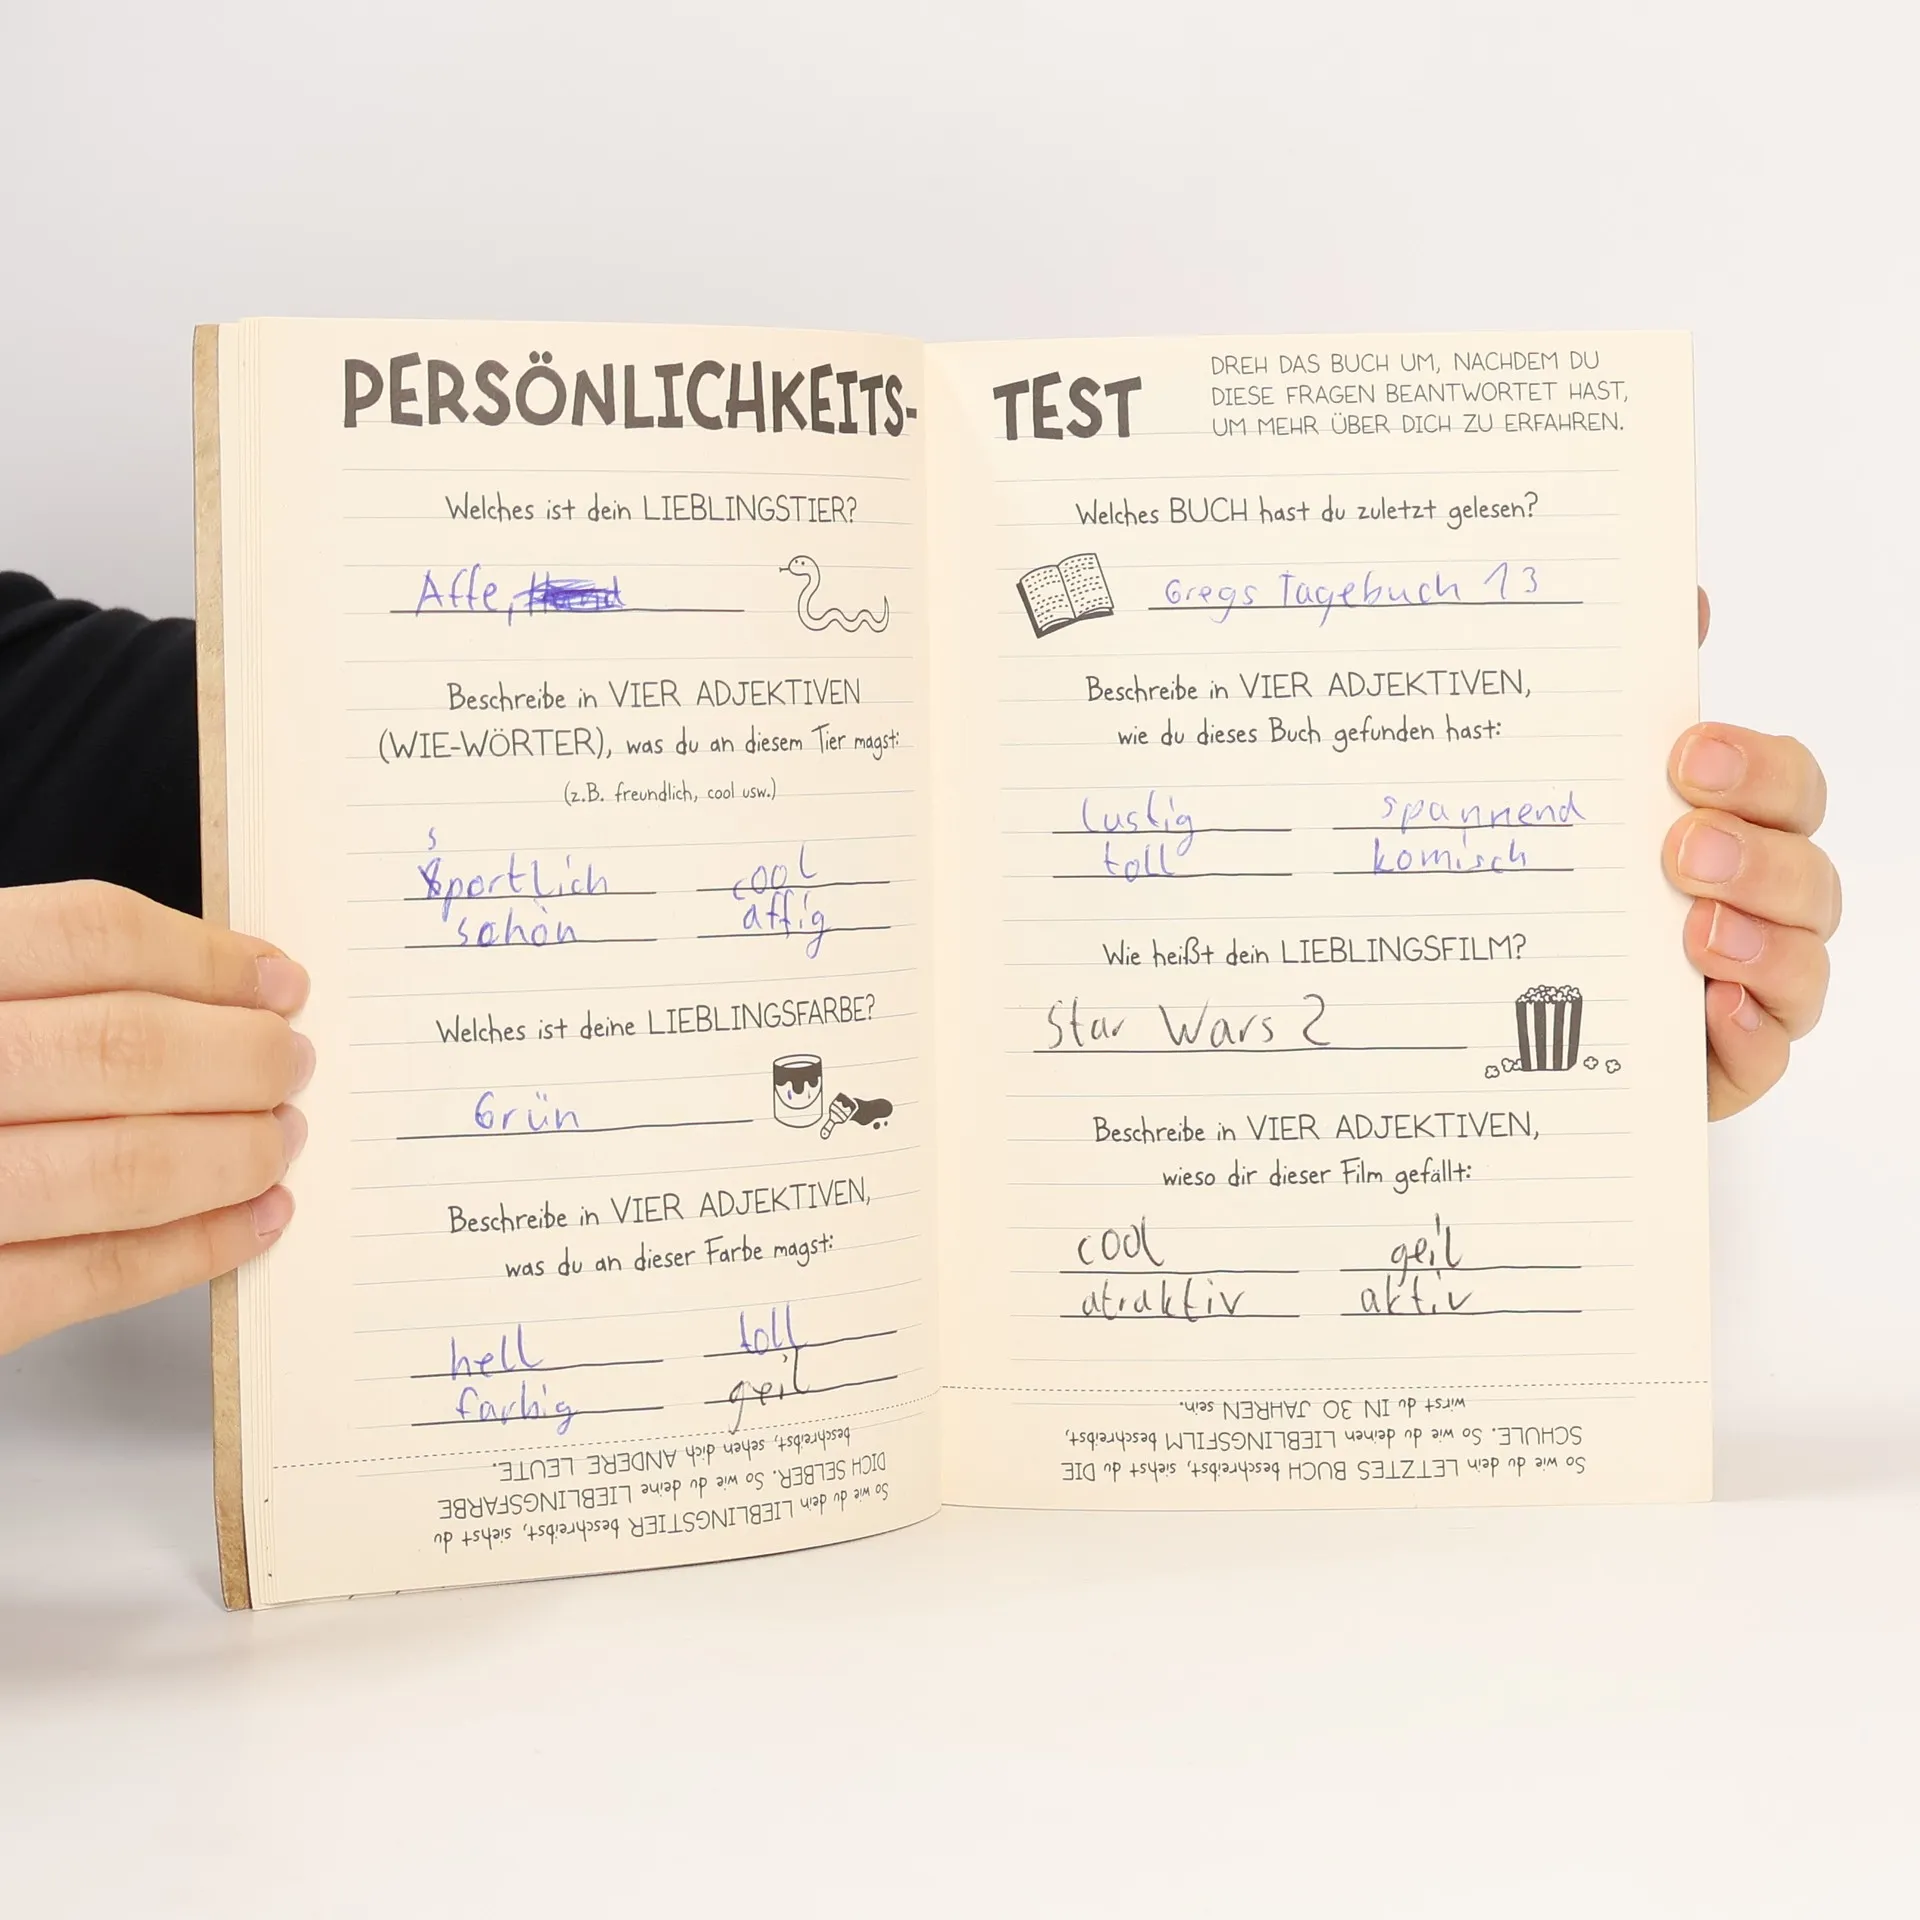 PERSÖNLICHKEITS-
Welches ist dein LIEBLINGSTIER?
Affe,
Beschreibe in VIER ADJEKTIVEN
(WIE-WÖRTER), was du an diesem Tier magst:
(z.B. freundlich, cool usw.)
sportlich cool
schön affig
Welches ist deine LIEBLINGSFARBE?
Grün
Beschreibe in VIER ADJEKTIVEN,
was du an dieser Farbe magst:
hell toll
farbig geil
So wie du dein LIEBLINGSTIER beschreibst, siehst du
DICH SELBER. So wie du deine LIEBLINGSFARBE
beschreibst, sehen dich ANDERE LEUTE.
TEST
DREH DAS BUCH UM, NACHDEM DU
DIESE FRAGEN BEANTWORTET HAST,
UM MEHR ÜBER DICH ZU ERFAHREN.
Welches BUCH hast du zuletzt gelesen?
Gregs Tagebuch 13
Beschreibe in VIER ADJEKTIVEN,
wie du dieses Buch gefunden hast:
lustig spannend
toll komisch
Wie heißt dein LIEBLINGSFILM?
Star Wars 2
Beschreibe in VIER ADJEKTIVEN,
wieso dir dieser Film gefällt:
cool geil
atraktiv aktiv
So wie du dein LETZTES BUCH beschreibst, siehst du DIE
SCHULE. So wie du deinen LIEBLINGSFILM beschreibst,
wirst du IN 30 JAHREN sein.